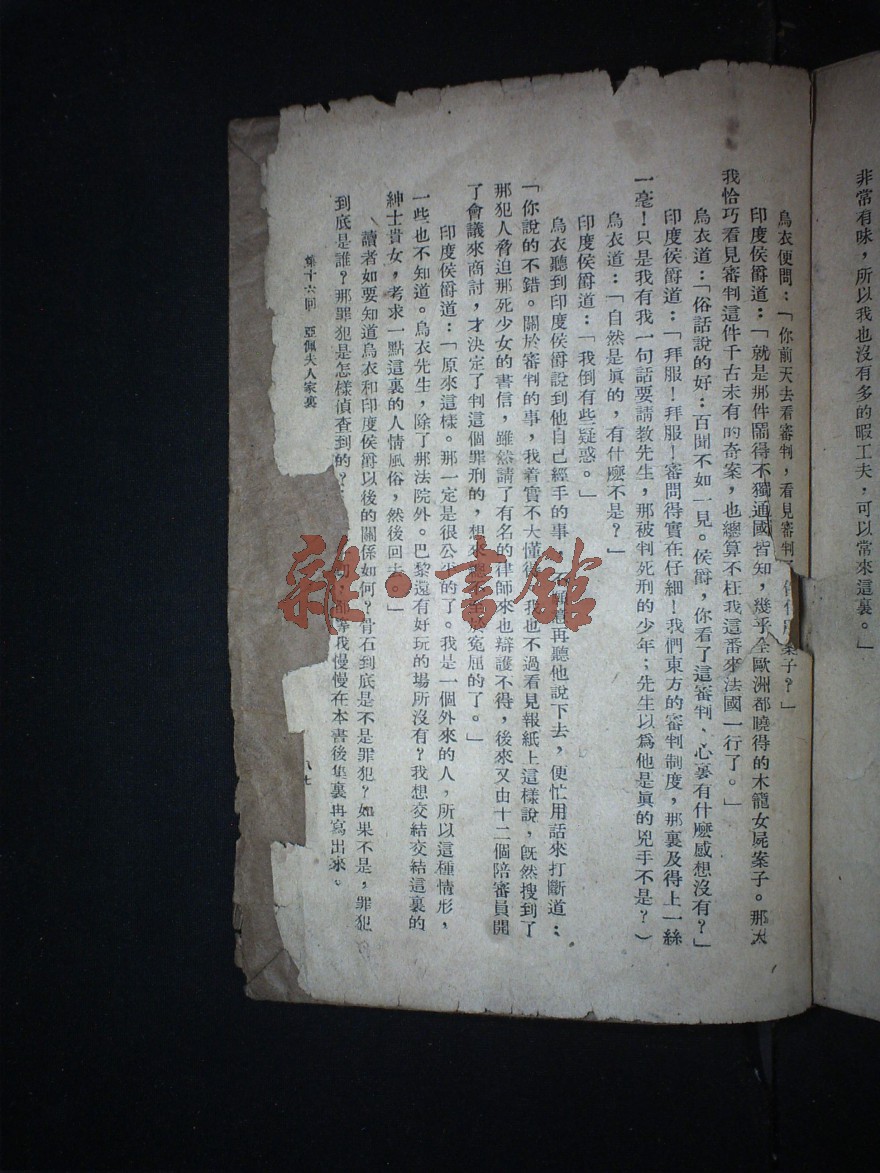 非常有味，所以我也沒有多的暇工夫，可以常來這裏。」
烏衣便問：「你前天去看審判，看見審判案子？」
印度侯爵道：「就是那件鬧得不獨通國皆知，幾乎全歐洲都曉得的木籠女屍案子。那天
我恰巧看見審判這件千古未有的奇案，也總算不枉我這番來法國一行了。」
烏衣道：「俗話說的好：百聞不如一見。侯爵，你看了這審判、心裏有什麼感想沒有？」
印度侯爵道：「拜服！拜服！審問得實在仔細！我們東方的審判制度，那裏及得上一絲
一毫！只是我有我一句話要請教先生，那被判死刑的少年；先生以爲他是眞的兇手不是？）
烏衣道：「自然是眞的，有什麼不是？」
印度侯爵道：「我倒有些疑惑。」
烏衣聽到印度侯爵說到他自己經手的事再聽他說下去，便忙用話來打斷道：
「你說的不錯。關於審判的事，我着實不大懂得我也不過看見報紙上這樣說，旣然搜到了
那犯人脅迫那死少女的書信，雖然請了有名的律師來也辯護不得，後來又由十二個陪審員開
了會議來商討，才決定了判這個罪刑的，想來冤屈的了。」
印度侯爵道：「原來這樣。那一定是很公平的了。我是一個外來的人，所以這種情形，
一些也不知道。烏衣先生，除了那法院外。巴黎還有好玩的場所沒有？我想交結交結這裏的
紳士貴女，考求一點這裏的人情風俗，然後回去。」
讀者如要知道烏衣和印度侯爵以後的關係如何？骨石到底是不是罪犯？如果不是，罪犯
到底是誰？那罪犯是怎樣偵查到的？等我慢慢在本書後集裏再寫出來。
第十六回　亞佩夫人家裏
八七
雜·書館